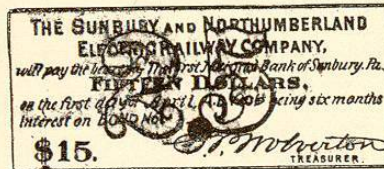 THE SUNBURY AND NORTHUMBERLAND
ELECTRIC RAILWAY COMPANY,
will pay the bearer, The First National Bank of Sunbury, Pa.
FIFTEEN DOLLARS,
on the first day of April, A.D. being six months
interest on BOND No.
$15.
Wolverton
TREASURER.
25